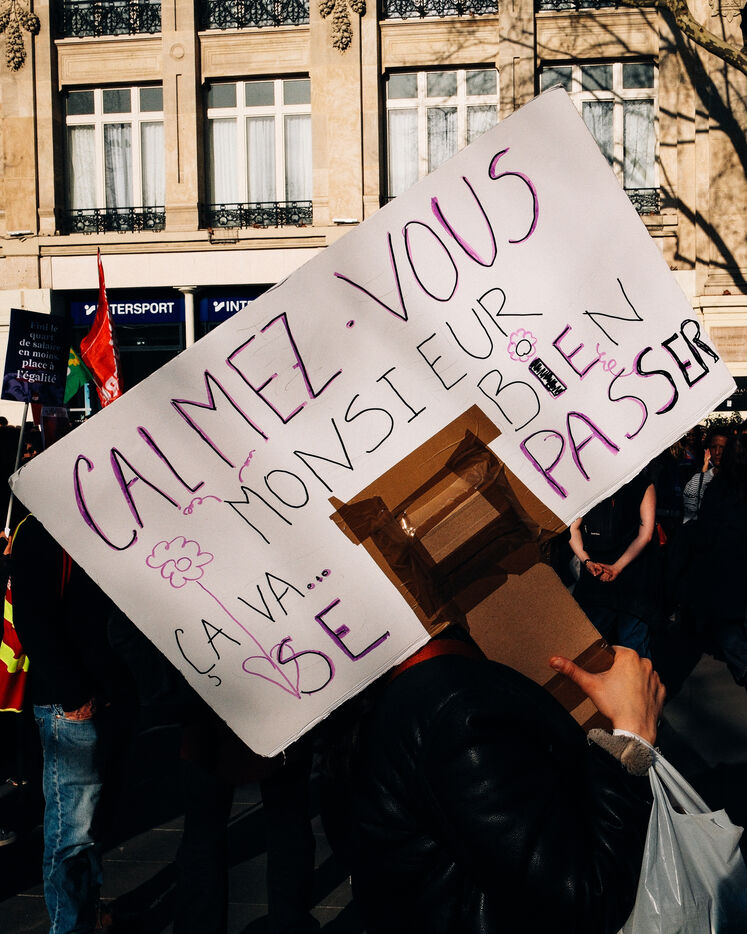 CALMEZ-VOUS
MONSIEUR
ÇA VA... BIEN
SE PASSER
INTERSPORT
INT
Fini le
quart
de salaire
en moins
place à
l'égalité